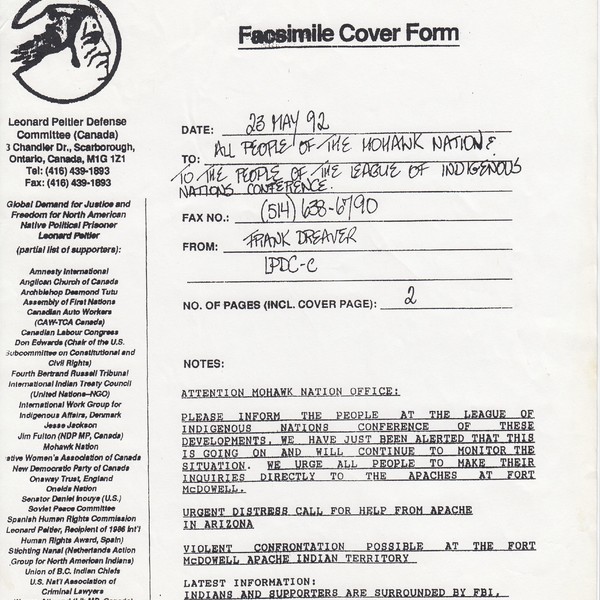 Facsimile Cover Form
Leonard Peltier Defense
Committee (Canada)
3 Chandler Dr., Scarborough,
Ontario, Canada, M1G 1Z1
Tel: (416) 439-1893
Fax: (416) 439-1893
Global Demand for Justice and
Freedom for North American
Native Political Prisoner
Leonard Peltier
(partial list of supporters):
Amnesty International
Anglican Church of Canada
Archbishop Desmond Tutu
Assembly of First Nations
Canadian Auto Workers
(CAW-TCA Canada)
Canadian Labour Congress
Don Edwards (Chair of the U.S.
Subcommittee on Constitutional and
Civil Rights)
Fourth Bertrand Russel Tribunal
International Indian Treaty Council
(United Nations-NGO)
International Work Group for
Indigenous Affairs, Denmark
Jesse Jackson
Jim Fulton (NDP MP, Canada)
Mohawk Nation
ative Women's Association of Canada
New Democratic Party of Canada
Onaway Trust, England
Oneida Nation
Senator Daniel Inouye (U.S.)
Soviet Peace Committee
Spanish Human Rights Commission
(Leonard Peltier, Recipient of 1986 Int'l
Human Rights Award, Spain)
Stichting Nanai (Netherlands Action
Group for North American Indians)
Union of B.C. Indian Chiefs
U.S. Nat'l Association of
Criminal Lawyers
DATE: 23 MAY 92
TO: ALL PEOPLE OF THE MOHAWK NATION &
TO THE PEOPLE OF THE LEAGUE OF INDIGENOUS
NATIONS CONFERENCE.
FAX NO.: (514) 638-6790
FROM: FRANK DREAVER
LPDC-C
NO. OF PAGES (INCL. COVER PAGE): 2
NOTES:
ATTENTION MOHAWK NATION OFFICE:
PLEASE INFORM THE PEOPLE AT THE LEAGUE OF
INDIGENOUS NATIONS CONFERENCE OF THESE
DEVELOPMENTS. WE HAVE JUST BEEN ALERTED THAT THIS
IS GOING ON AND WILL CONTINUE TO MONITOR THE
SITUATION. WE URGE ALL PEOPLE TO MAKE THEIR
INQUIRIES DIRECTLY TO THE APACHES AT FORT
McDOWELL.
URGENT DISTRESS CALL FOR HELP FROM APACHE
IN ARIZONA
VIOLENT CONFRONTATION POSSIBLE AT THE FORT
McDOWELL APACHE INDIAN TERRITORY
LATEST INFORMATION:
INDIANS AND SUPPORTERS ARE SURROUNDED BY FBI,